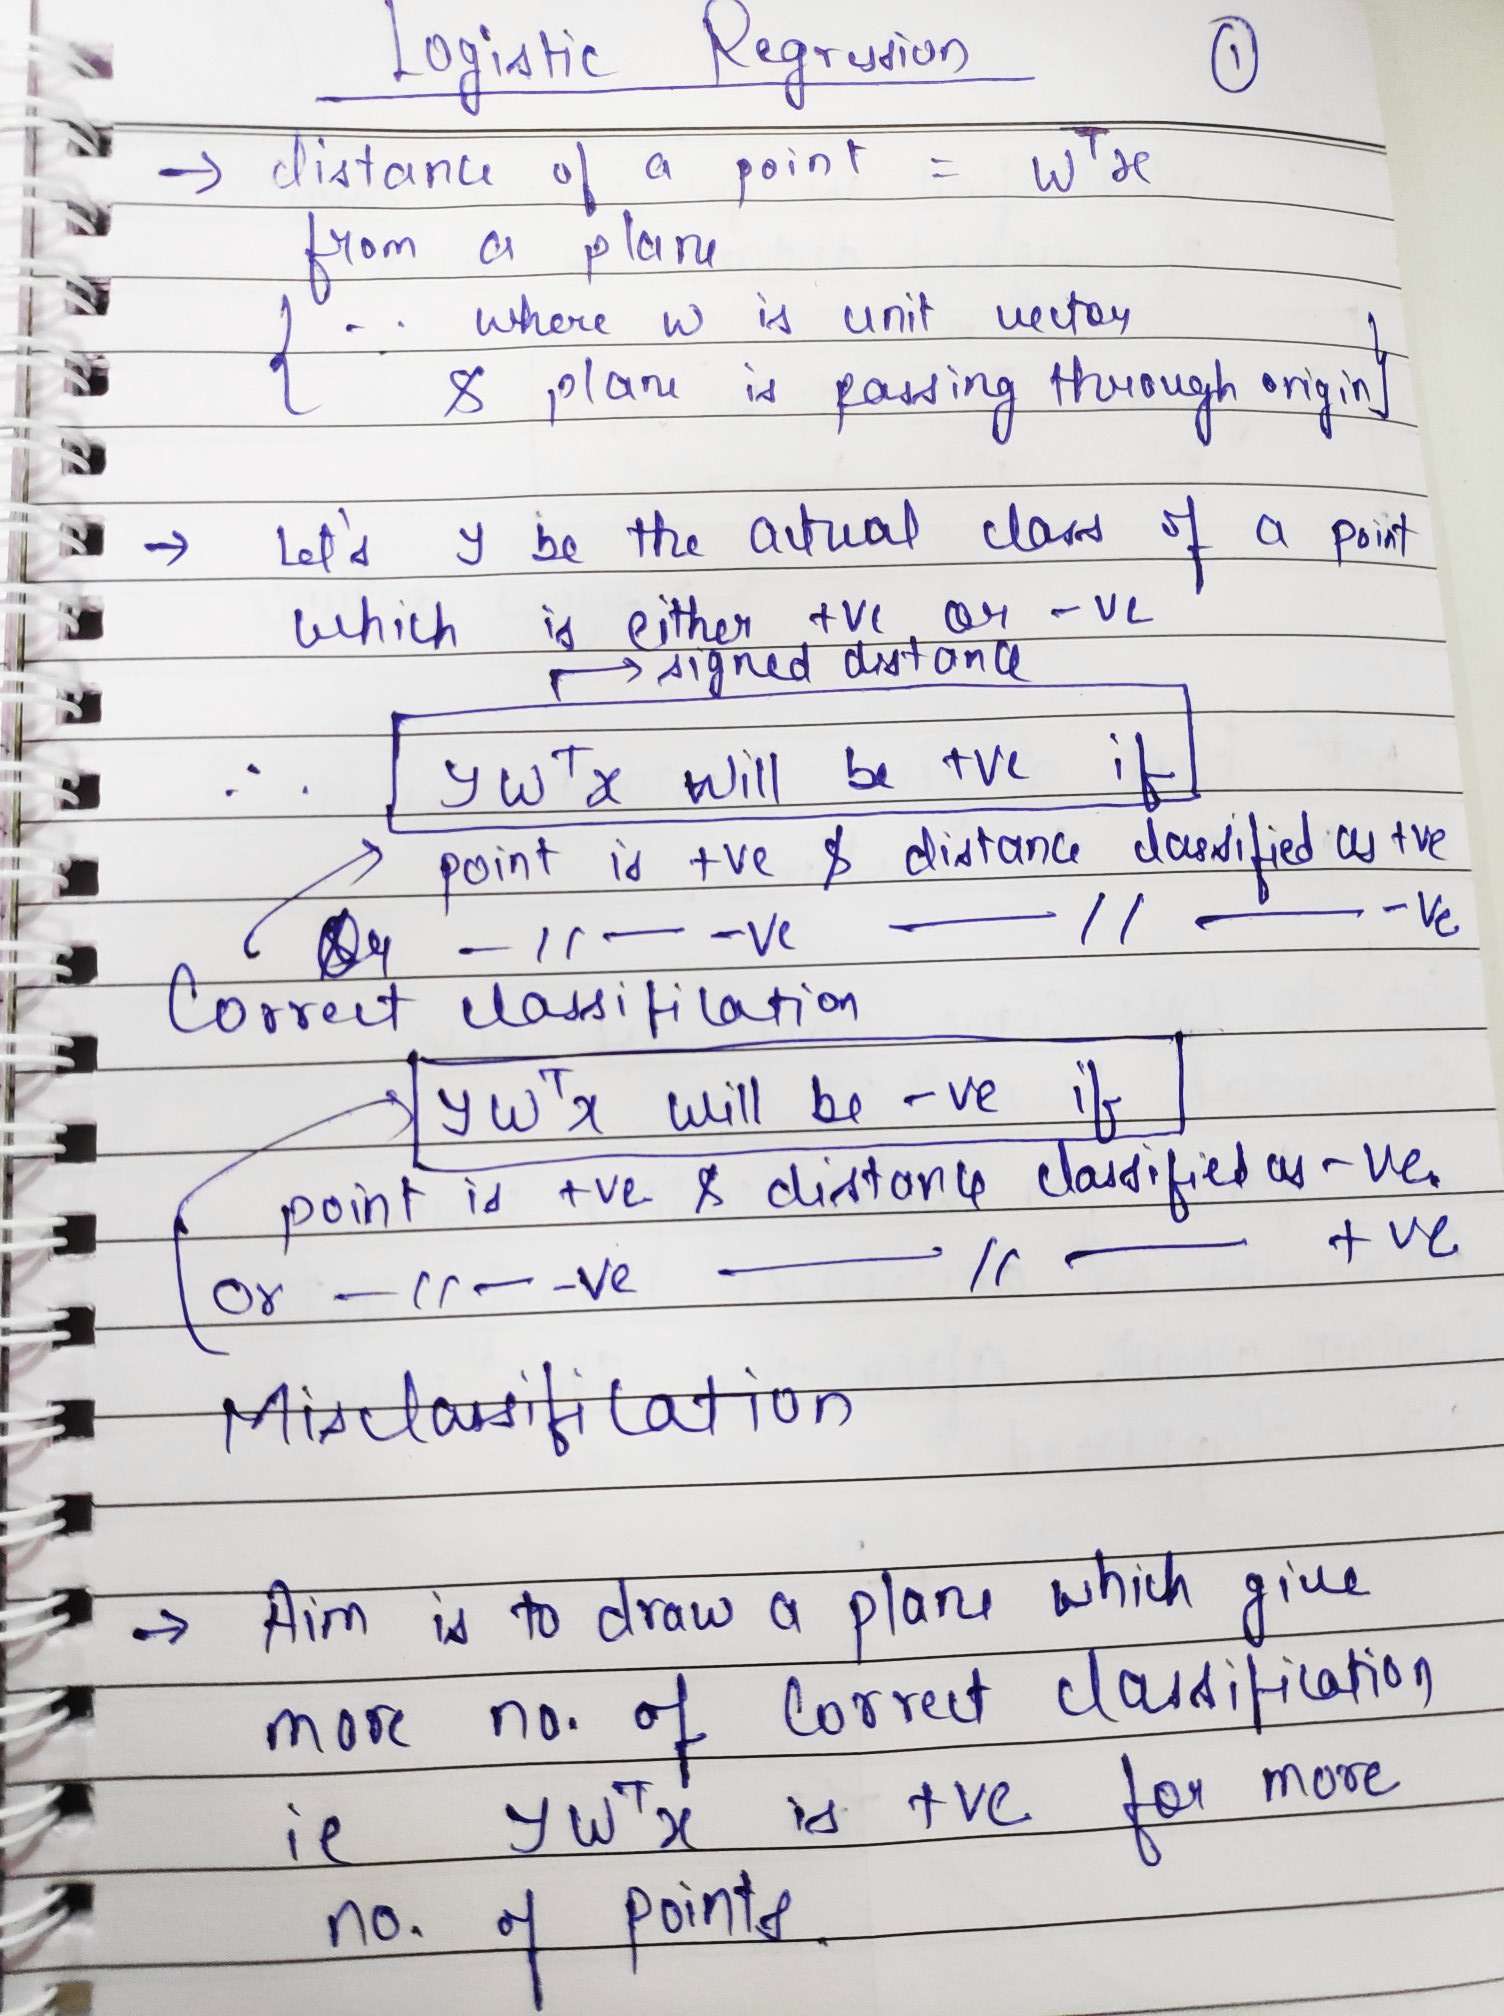 Logistic Regression ①
→ distance of a point = wᵀx
from a plane
{ ∵ where w is unit vector
& plane is passing through origin}
→ Let's y be the actual class of a point
which is either +ve or -ve
→ signed distance
∴ ywᵀx will be +ve if
point is +ve & distance classified as +ve
Or —〃— -ve —〃— -ve
Correct classification
ywᵀx will be -ve if
point is +ve & distance classified as -ve.
or —〃— -ve —〃— +ve
Misclassification
→ Aim is to draw a plane which give
more no. of Correct classification
ie ywᵀx is +ve for more
no. of points.